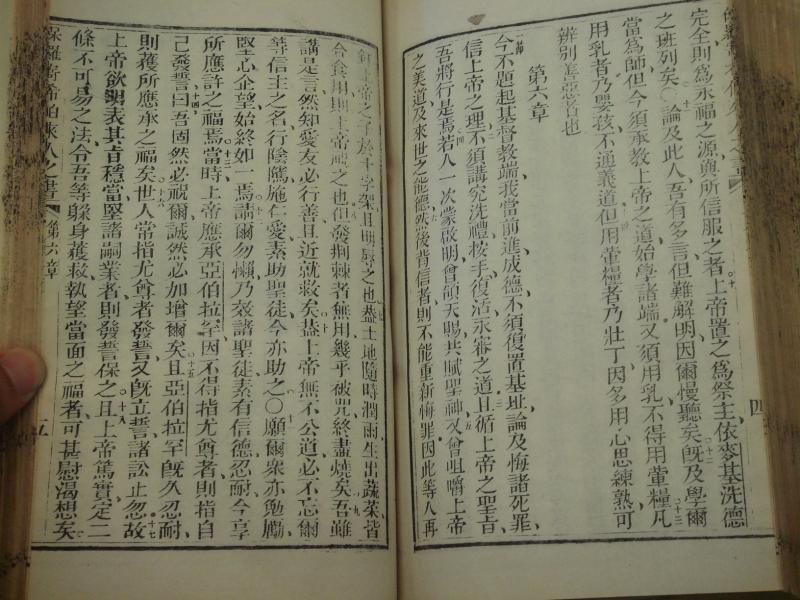 四
完全則爲永福之源與所信服之者、上帝置之爲祭主、依麥基洗德
之班列矣○論及此人吾有多言、但難解明、因爾慢聽矣、旣及學爾
當爲師、但今須承教上帝之道始學諸端、又須用乳、不得用葷糧、凡
用乳者乃嬰孩、不通義道、但用葷糧者乃壯丁、因多用心思練熟、可
辨別善惡者也
第六章
今不題起基督教端、我當前進成德、不須復置基址、論及悔諸死罪、
信上帝之理、不須講究洗禮按手、復活永審之道、且循上帝之聖旨、
吾將行是焉、若人一次蒙啟明、曾領天賜、共賦聖神、又曾咀嚼上帝
之美道、及來世之能德、然後背信者、則不能重新悔罪、因此等人再
釘上帝之子於十字架、且明辱之也、蓋土地隨時潤雨、生出蔬菜、皆
合食用、則上帝祝之也、但發荆棘者無用、幾乎被咒、終盡燒矣、吾雖
講是言、然知愛友必行善、且近就救矣、蓋上帝無不公道、必不忘爾
等信主之名、行陰騭、施仁愛、素助聖徒、今亦助之○願爾衆亦勉勵、
堅心企望、始終如一焉、請爾勿懶、乃效諸聖徒、素有信德忍耐、今享
所應許之福焉、當時上帝應承亞伯拉罕、因不得指尤尊者、則指自
己發誓曰、吾固然必祝爾、誠然必加增爾矣、且亞伯拉罕旣久忍耐、
則獲所應承之福矣、世人常指尤尊者發誓、又旣立誓、諸訟止、忽故
上帝欲明表其旨穩當、堅諸嗣業者、則發誓保之、且上帝篤實、定二
條不可易之法、令吾等躲身獲救、執望當面之福者、可甚慰渴想矣、
保羅寄希伯來人之書 第六章 五